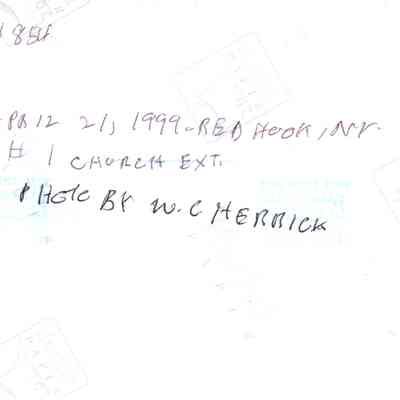 854
PR12 21, 1999-RED HOOK, NY.
# 1 CHURCH EXT.
PHOTO BY W.C HERRICK